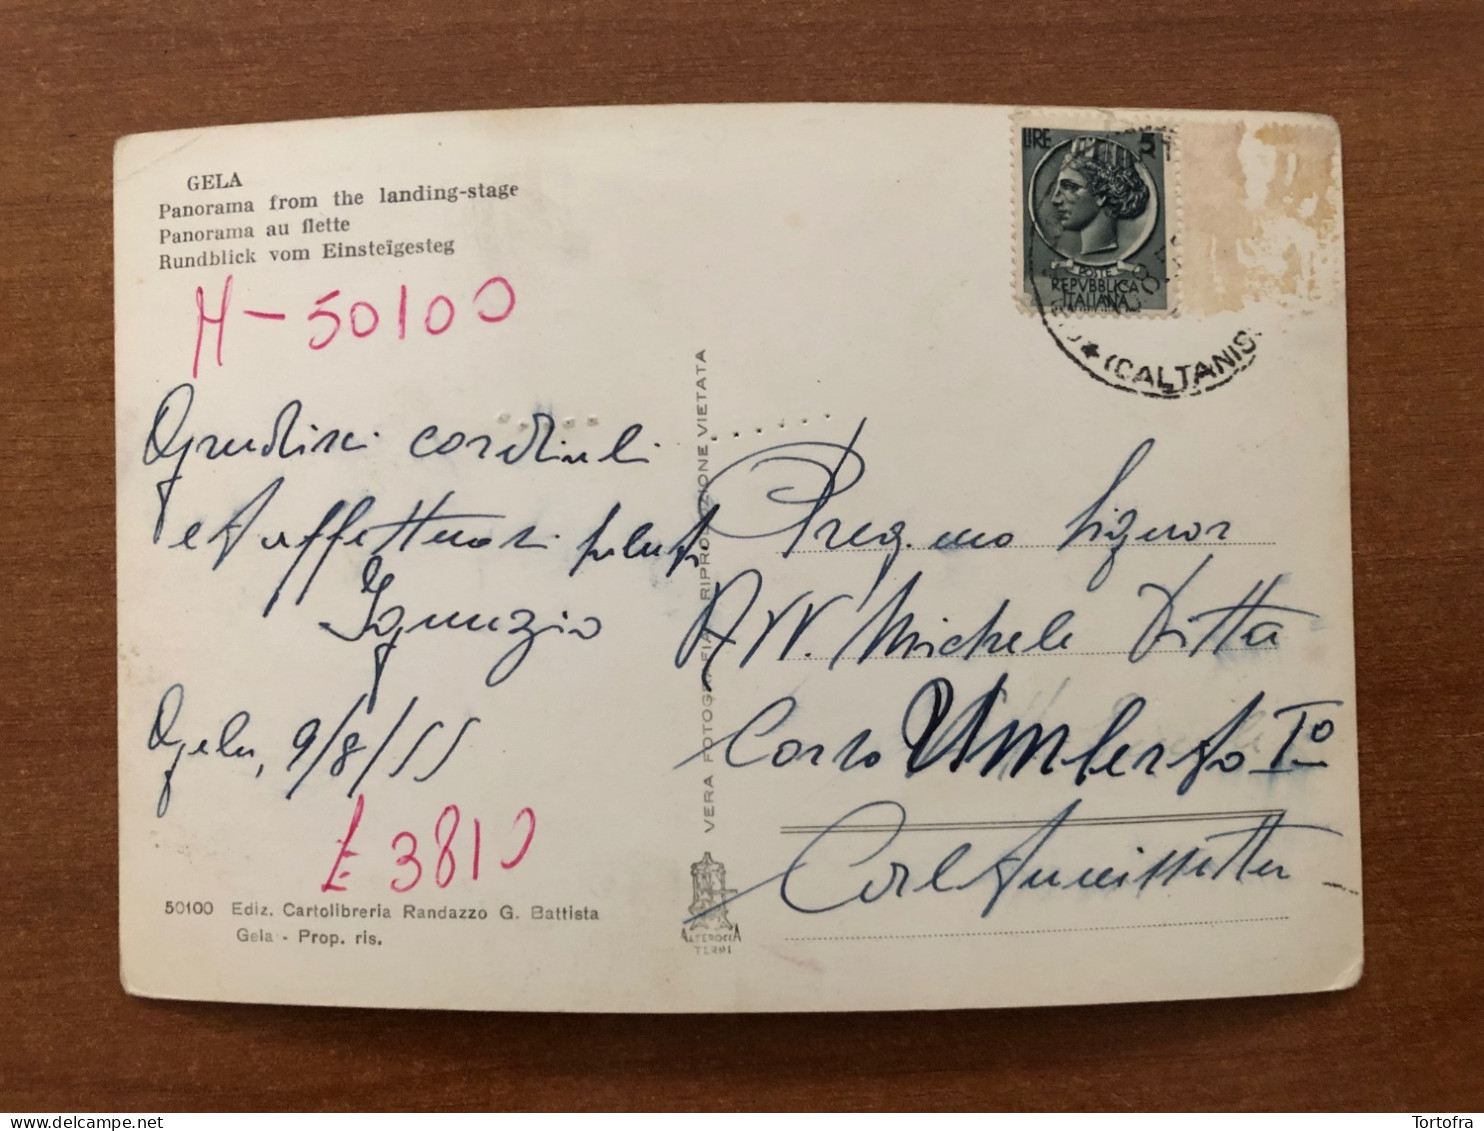 GELA
Panorama from the landing-stage
Panorama au flette
Rundblick vom Einsteïgesteg
H-50100
Gradisci cordiali
e affettuosi saluti
Ignazio
Gela, 9/8/55
£ 3810
50100 Ediz. Cartolibreria Randazzo G. Battista
Gela - Prop. ris.
VERA FOTOGRAFIA RIPRODUZIONE VIETATA
ALTEROCCA
TERNI
LIRE 5
POSTE
REPVBBLICA
ITALIANA
(CALTANIS
Preg.mo Signor
Avv. Michele Vitta
Corso Umberto I°
Caltanissetta
Tortofra
www.delcampe.net